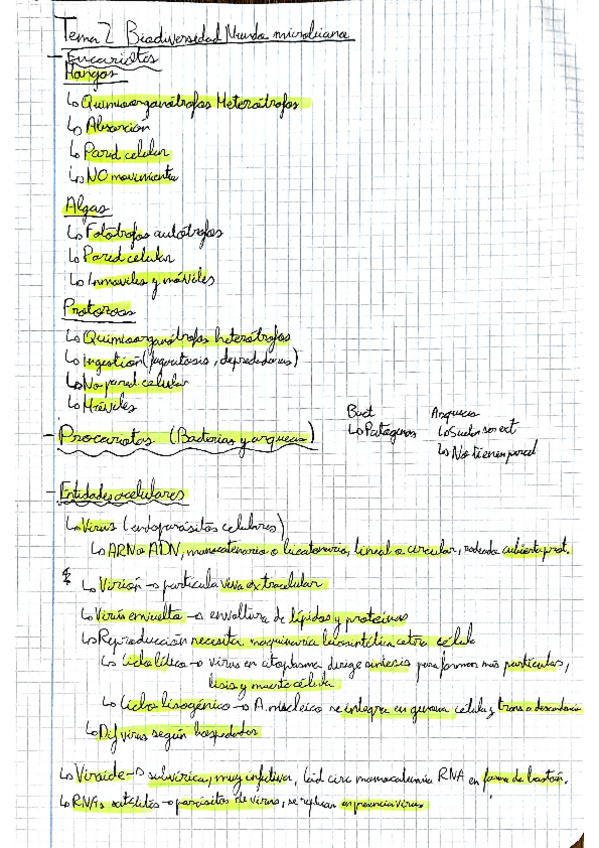 Tema 2 Biodiversidad Mundo microbiano
- Eucariotas
Hongos
↳ Quimioorganótrofos Heterótrofos
↳ Absorción
↳ Pared celular
↳ NO movimiento
Algas
↳ Fotótrofos autótrofos
↳ Pared celular
↳ Inmóviles y móviles
Protozoos
↳ Quimioorganótrofos heterótrofos
↳ Ingestión (fagocitosis, depredadores)
↳ No pared celular
↳ Móviles
- Procariotas (Bacterias y arqueas)
Bact Arqueas
↳ Patógenos ↳ Suelen ser ext
↳ No tienen pared
- Entidades acelulares
↳ Virus (endoparásitos celulares)
↳ ARN o ADN, monocatenario o bicatenario, lineal o circular, rodeado cubierta prot.
↳ Virión → partícula viva extracelular
↳ Virus envuelto → envoltura de lípidos y proteínas
↳ Reproducción necesita maquinaria biosintética otra célula
↳ Ciclo lítico → virus en citoplasma dirige síntesis para formar más partículas,
lisis y muerte célula
↳ Ciclo lisogénico → A. nucleico se integra en genoma célula y trans a descendencia
↳ Dif virus según hospedador
↳ Viroide → subvírica, muy infectiva, circ monocatenario RNA en forma de bastón.
↳ RNAs satélites → parásitos de virus, se replican en presencia virus